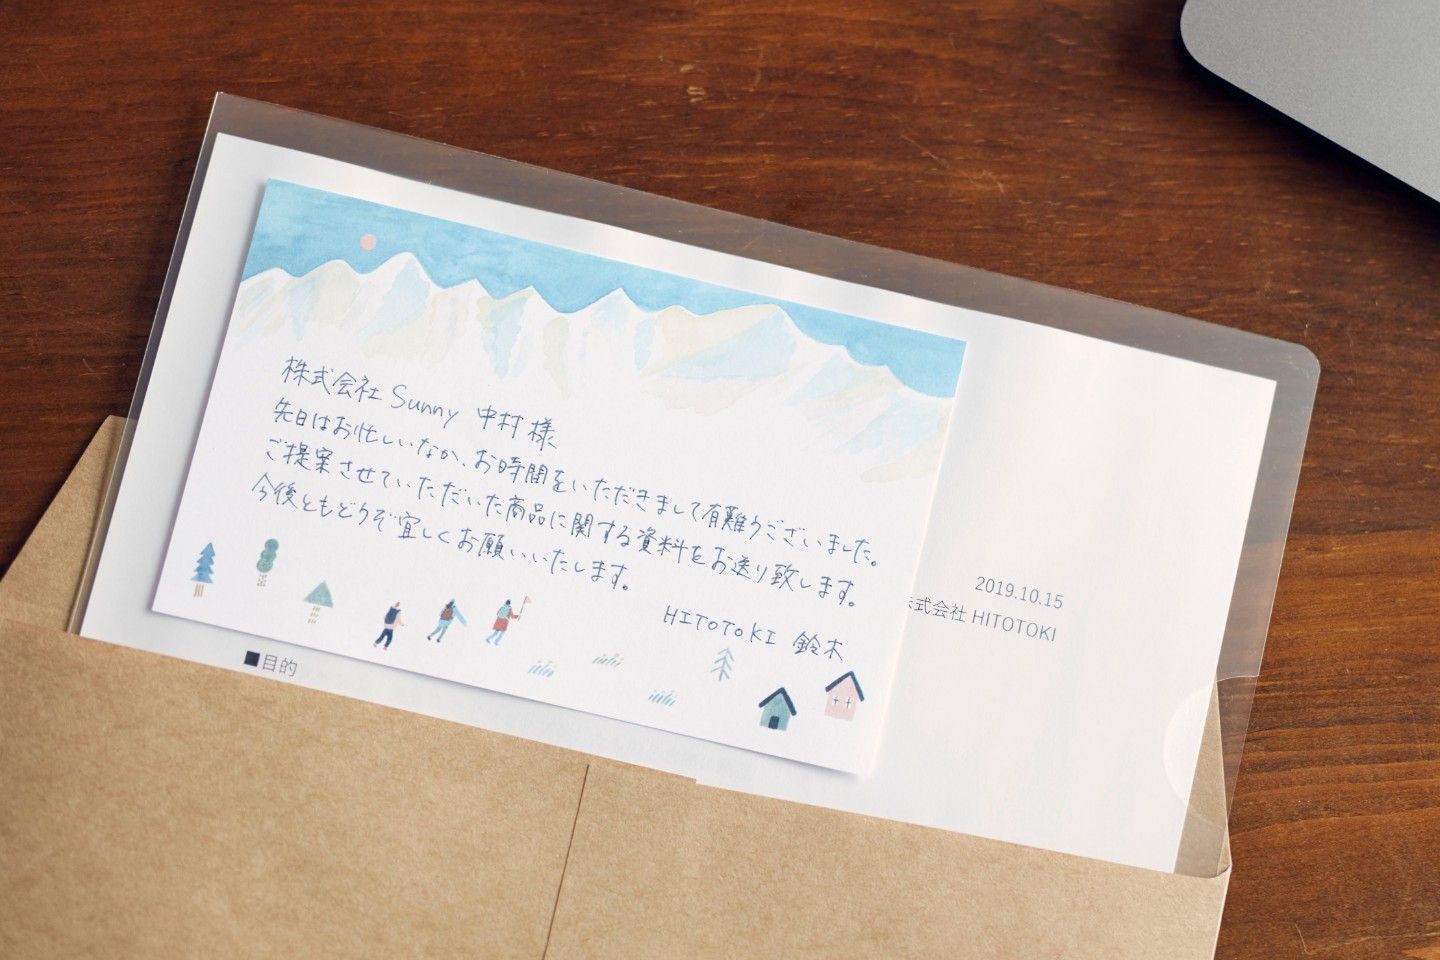 株式会社 Sunny 中村 様
先日はお忙しいなか、お時間をいただきまして有難うございました。
ご提案させていただいた商品に関する資料をお送り致します。
今後ともどうぞ宜しくお願いいたします。
HITOTOKI 鈴木
2019.10.15
式会社 HITOTOKI
■目的